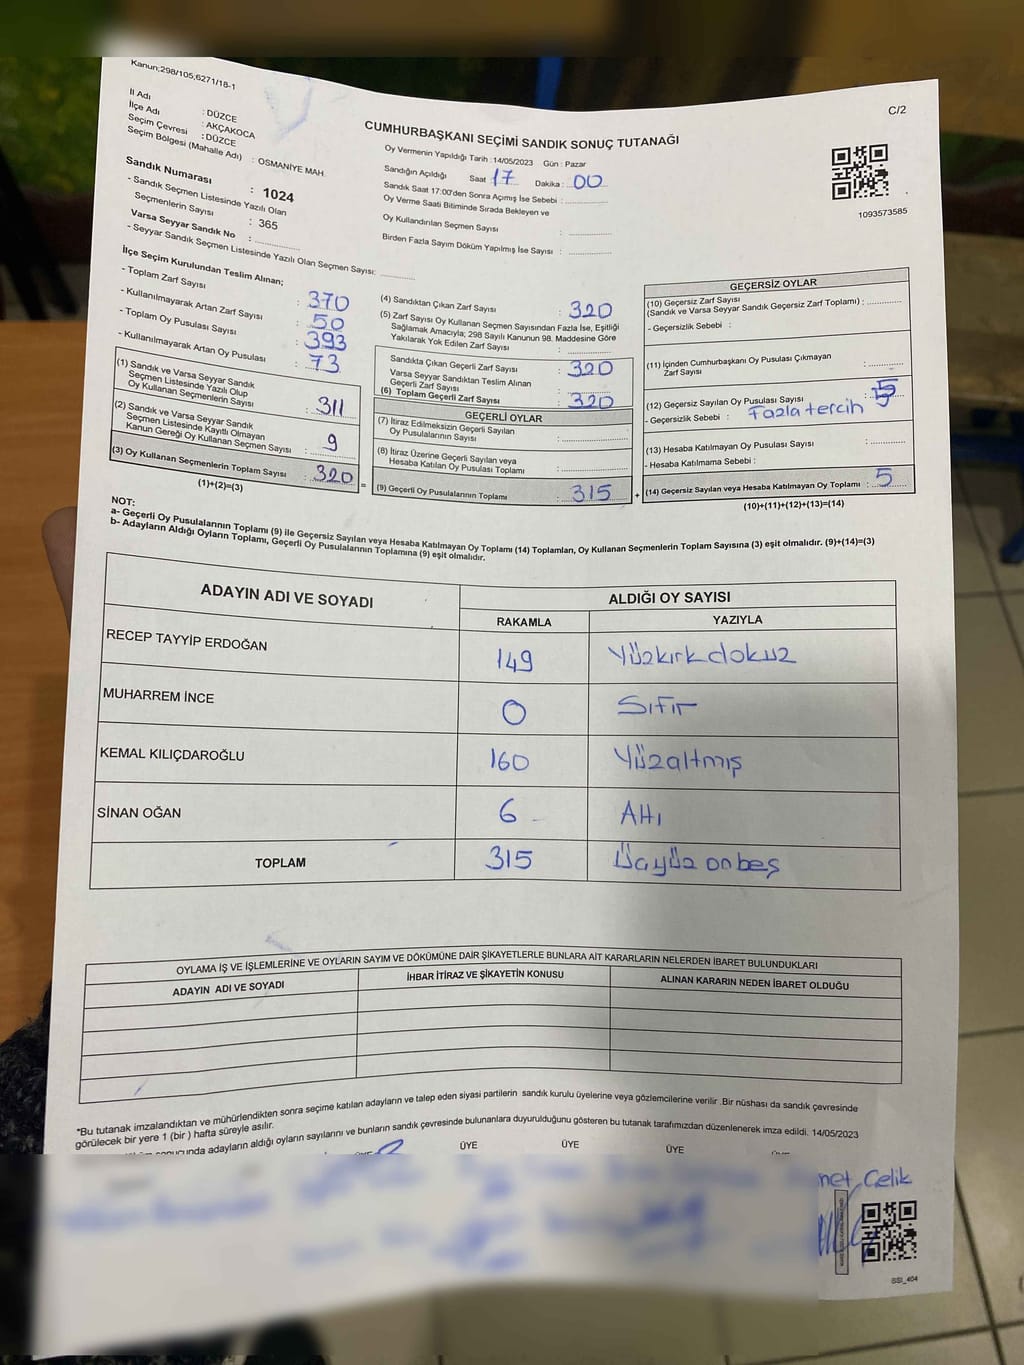 Kanun;298/105;6271/18-1
C/2
İl Adı : DÜZCE
İlçe Adı : AKÇAKOCA
Seçim Çevresi : DÜZCE
Seçim Bölgesi (Mahalle Adı) : OSMANİYE MAH
Sandık Numarası : 1024
- Sandık Seçmen Listesinde Yazılı Olan
Seçmenlerin Sayısı : 365
Varsa Seyyar Sandık No : ..............
- Seyyar Sandık Seçmen Listesinde Yazılı Olan Seçmen Sayısı: ............
CUMHURBAŞKANI SEÇİMİ SANDIK SONUÇ TUTANAĞI
Oy Vermenin Yapıldığı Tarih : 14/05/2023 Gün : Pazar
Sandığın Açıldığı Saat 17 Dakika : 00
Sandık Saat 17:00'den Sonra Açımış İse Sebebi : ..............
Oy Verme Saati Bitiminde Sırada Bekleyen ve
Oy Kullandırılan Seçmen Sayısı : ..............
Birden Fazla Sayım Döküm Yapılmış İse Sayısı : ..............
1093573585
İlçe Seçim Kurulundan Teslim Alınan;
- Toplam Zarf Sayısı : 370
- Kullanılmayarak Artan Zarf Sayısı : 50
- Toplam Oy Pusulası Sayısı : 393
- Kullanılmayarak Artan Oy Pusulası : 73
(1) Sandık ve Varsa Seyyar Sandık
Seçmen Listesinde Yazılı Olup
Oy Kullanan Seçmenlerin Sayısı : 311
(2) Sandık ve Varsa Seyyar Sandık
Seçmen Listesinde Kayıtlı Olmayan
Kanun Gereği Oy Kullanan Seçmen Sayısı : 9
(3) Oy Kullanan Seçmenlerin Toplam Sayısı : 320
(1)+(2)=(3)
=
(4) Sandıktan Çıkan Zarf Sayısı : 320
(5) Zarf Sayısı Oy Kullanan Seçmen Sayısından Fazla İse, Eşitliği
Sağlamak Amacıyla; 298 Sayılı Kanunun 98. Maddesine Göre
Yakılarak Yok Edilen Zarf Sayısı : ..............
Sandıkta Çıkan Geçerli Zarf Sayısı : 320
Varsa Seyyar Sandıktan Teslim Alınan
Geçerli Zarf Sayısı : ..............
(6) Toplam Geçerli Zarf Sayısı : 320
GEÇERLİ OYLAR
(7) İtiraz Edilmeksizin Geçerli Sayılan
Oy Pusulalarının Sayısı : ..............
(8) İtiraz Üzerine Geçerli Sayılan veya
Hesaba Katılan Oy Pusulası Toplamı : ..............
(9) Geçerli Oy Pusulalarının Toplamı : 315
+
GEÇERSİZ OYLAR
(10) Geçersiz Zarf Sayısı
(Sandık ve Varsa Seyyar Sandık Geçersiz Zarf Toplamı) : ..............
- Geçersizlik Sebebi :
(11) İçinden Cumhurbaşkanı Oy Pusulası Çıkmayan
Zarf Sayısı : ..............
(12) Geçersiz Sayılan Oy Pusulası Sayısı : 5
- Geçersizlik Sebebi : Fazla tercih
(13) Hesaba Katılmayan Oy Pusulası Sayısı : ..............
- Hesaba Katılmama Sebebi :
(14) Geçersiz Sayılan veya Hesaba Katılmayan Oy Toplamı : 5
(10)+(11)+(12)+(13)=(14)
NOT:
a- Geçerli Oy Pusulalarının Toplamı (9) ile Geçersiz Sayılan veya Hesaba Katılmayan Oy Toplamı (14) Toplamları, Oy Kullanan Seçmenlerin Toplam Sayısına (3) eşit olmalıdır. (9)+(14)=(3)
b- Adayların Aldığı Oyların Toplamı, Geçerli Oy Pusulalarının Toplamına (9) eşit olmalıdır.
ADAYIN ADI VE SOYADI ALDIĞI OY SAYISI
RAKAMLA YAZIYLA
RECEP TAYYİP ERDOĞAN 149 Yüzkırkdokuz
MUHARREM İNCE 0 Sıfır
KEMAL KILIÇDAROĞLU 160 Yüzaltmış
SİNAN OĞAN 6 Altı
TOPLAM 315 Üçyüz onbeş
OYLAMA İŞ VE İŞLEMLERİNE VE OYLARIN SAYIM VE DÖKÜMÜNE DAİR ŞİKAYETLERLE BUNLARA AİT KARARLARIN NELERDEN İBARET BULUNDUKLARI
ADAYIN ADI VE SOYADI İHBAR İTİRAZ VE ŞİKAYETİN KONUSU ALINAN KARARIN NEDEN İBARET OLDUĞU
*Bu tutanak imzalandıktan ve mühürlendikten sonra seçime katılan adayların ve talep eden siyasi partilerin sandık kurulu üyelerine veya gözlemcilerine verilir .Bir nüshası da sandık çevresinde
görülecek bir yere 1 (bir ) hafta süreyle asılır.
adayların aldığı oyların sayılarını ve bunların sandık çevresinde bulunanlara duyurulduğunu gösteren bu tutanak tarafımızdan düzenlenerek imza edildi. 14/05/2023
ÜYE ÜYE ÜYE
Celik
BSI_404